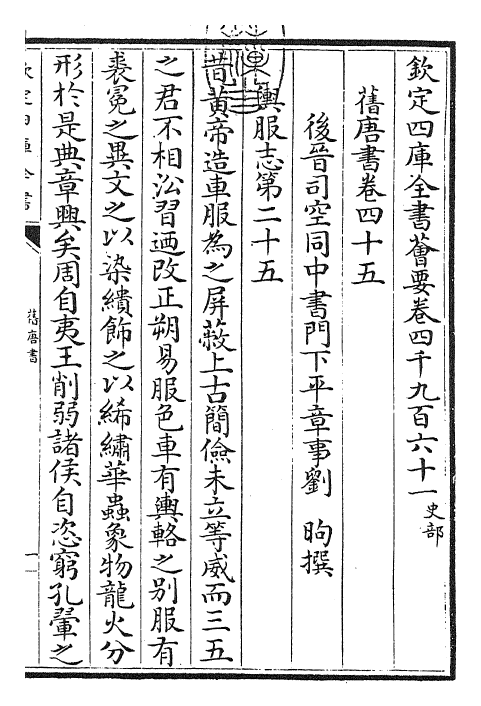 欽定四庫全書薈要卷四千九百六十一史部
舊唐書卷四十五
後晉司空同中書門下平章事劉昫撰
輿服志第二十五
昔黃帝造車服為之屏蔽上古簡儉未立等威而三五
之君不相沿習迺改正朔易服色車有輿輅之别服有
裘冕之異文之以染繢飾之以絺繡華蟲象物龍火分
形於是典章興矣周自夷王削弱諸侯自恣窮孔翬之
欽定四庫全書
舊唐書
一